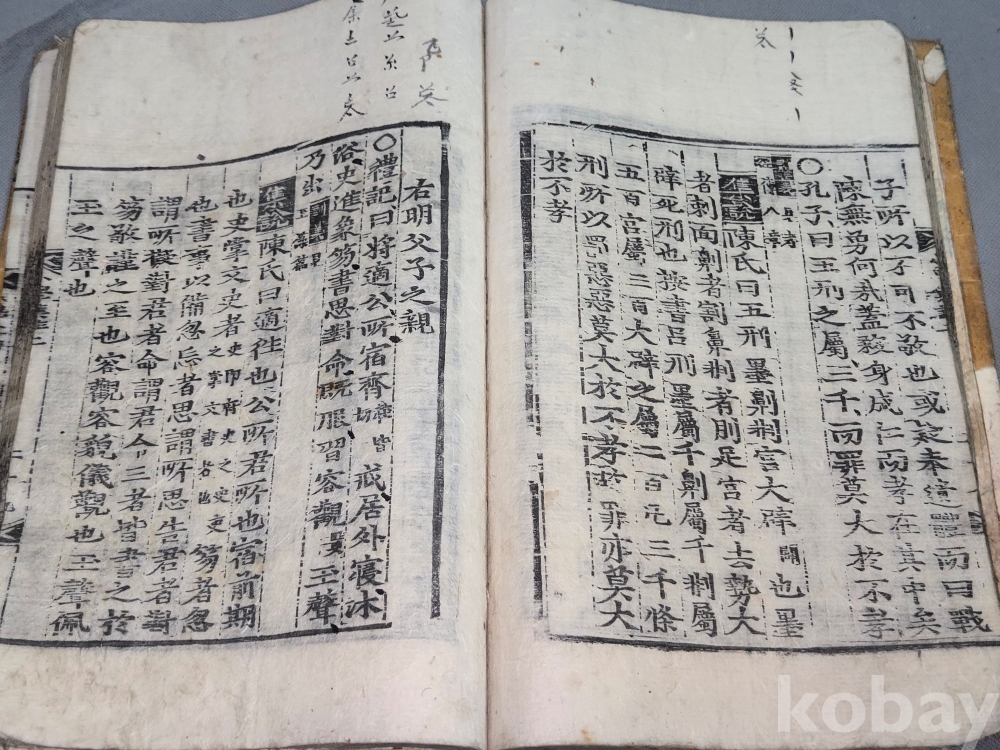 子所以不可不敬也或疑奉遺體而曰戰
陳無勇何哉蓋殺身成仁而孝在其中矣
○孔子曰五刑之屬三千而罪莫大於不孝
陳氏曰五刑墨劓剕宮大辟闢也墨
者刺面劓者割鼻剕者刖足宮者去勢大
辟死刑也按書呂刑墨屬千劓屬千剕屬
五百宮屬三百大辟之屬二百凡三千條
刑所以罰惡惡莫大於不孝故罪亦莫大
於不孝
右明父子之親
○禮記曰將適公所宿齊側皆切戒居外寢沐
浴史進象笏書思對命旣服習容觀去玉聲
乃出
集註陳氏曰適往也公所君所也宿前期
也史掌文史者史卽府史之史掌文書者也笏者忽
也書事以備忽忘者思謂所思告君者對
謂所擬對君者命謂君命三者皆書之於
笏敬謹之至也容觀容貌儀觀也玉聲佩
玉之聲也
kobay